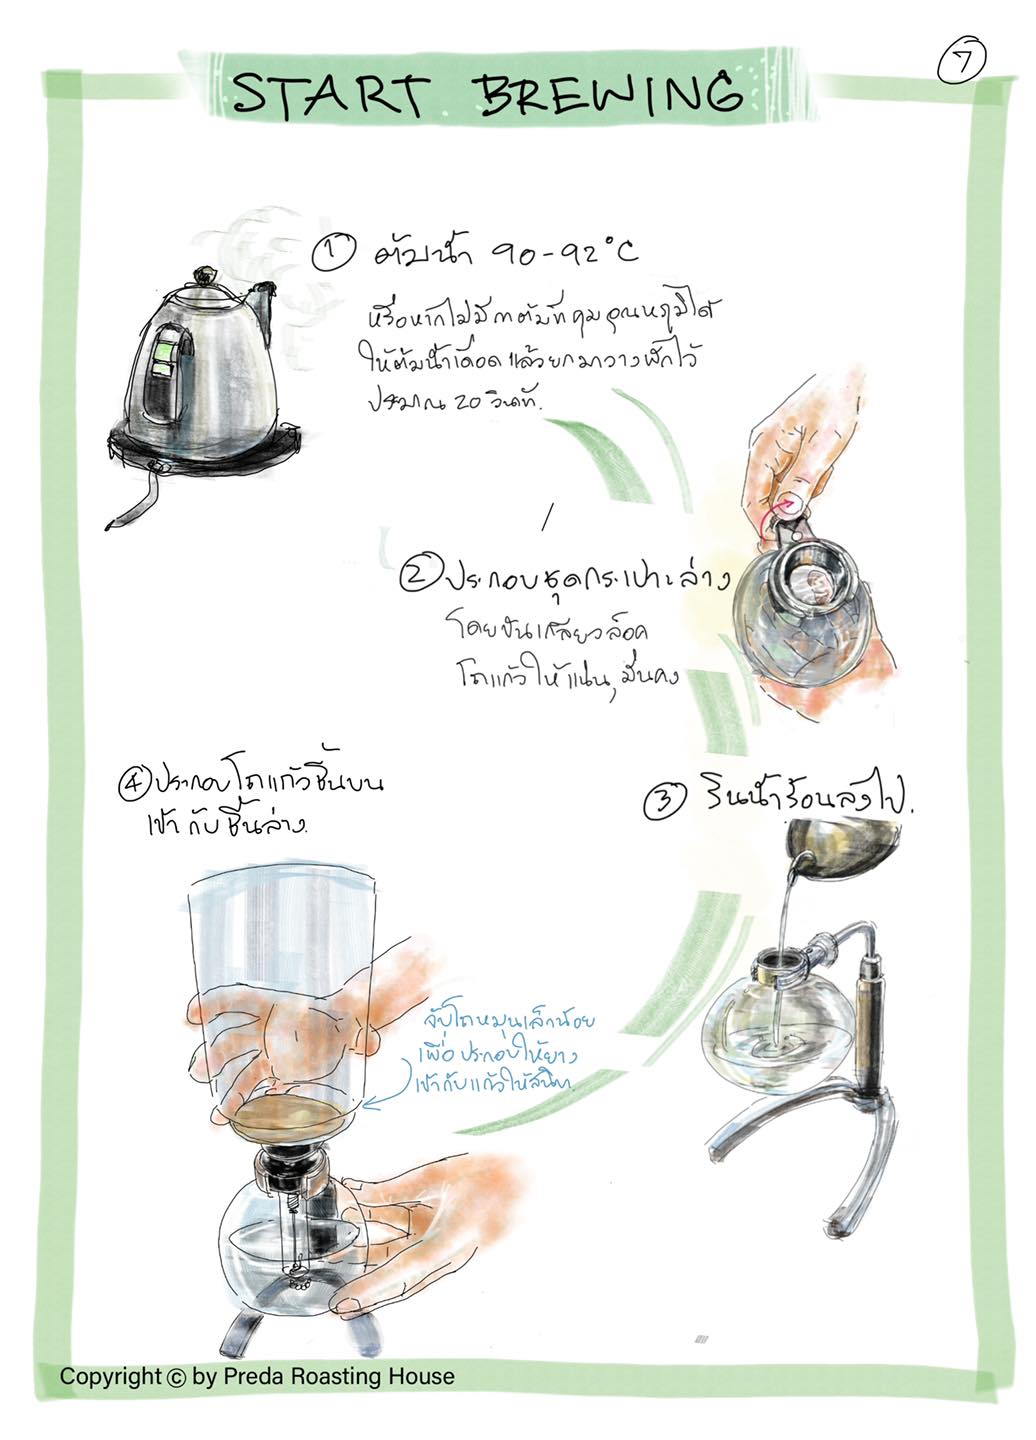 7
START BREWING
① ต้มน้ำ 90-92°C
หรือหากไม่มีกาต้มที่คุมอุณหภูมิได้
ให้ต้มน้ำเดือดแล้วยกมาวางพักไว้
ประมาณ 20 วินาที.
② ประกอบชุดกระเปาะล่าง
โดยขันเกลียวล็อค
โถแก้วให้แน่น, มั่นคง
③ รินน้ำร้อนลงไป.
④ ประกอบโถแก้วชิ้นบน
เข้ากับชิ้นล่าง.
จับโถหมุนเล็กน้อย
เพื่อประกอบให้ยาง
เข้ากับแก้วให้สนิท.
Copyright © by Preda Roasting House